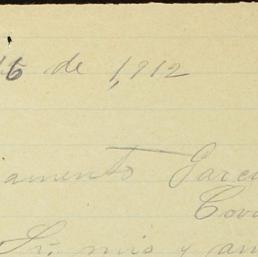 16 de 1,912
amento Garc
Cov
Sr. mio y am